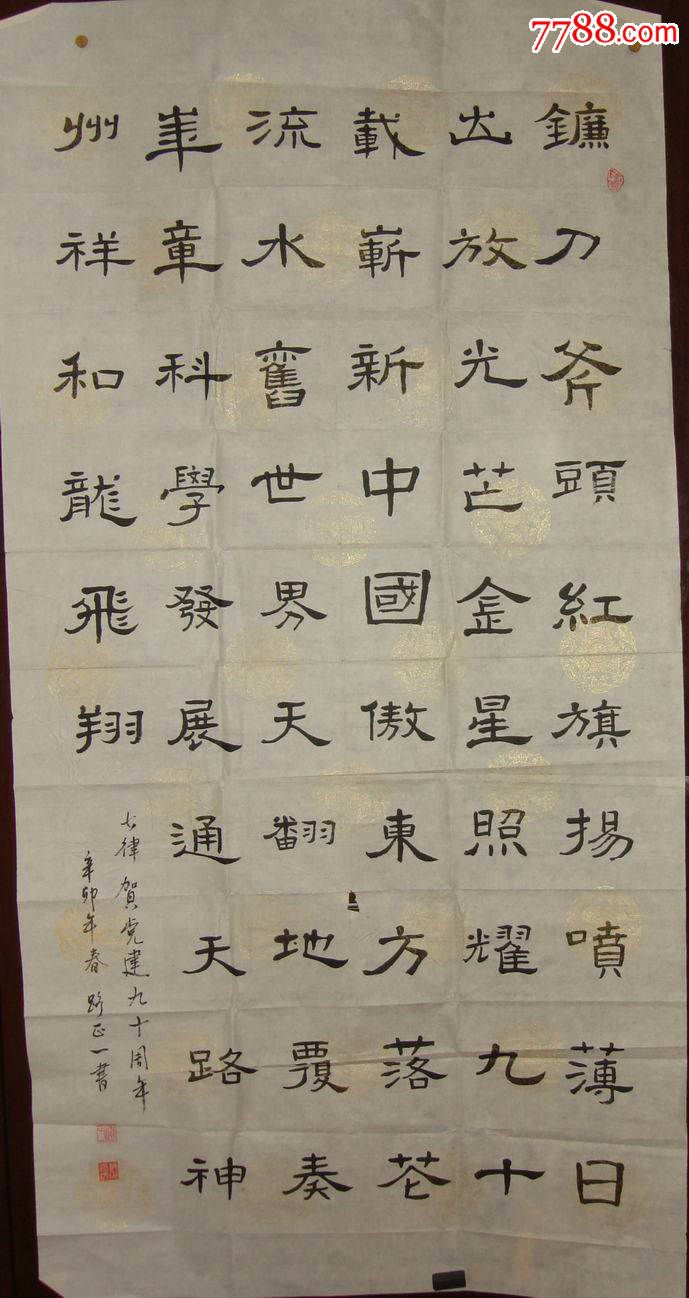 7788.com
鐮刀斧頭紅旗揚噴薄日
出放光芒金星照耀九十
載嶄新中國傲東方落花
流水舊世界天翻地覆奏
華章科學發展通天路神
州祥和龍飛翔
七律賀党建九十周年
辛卯年春路正一書